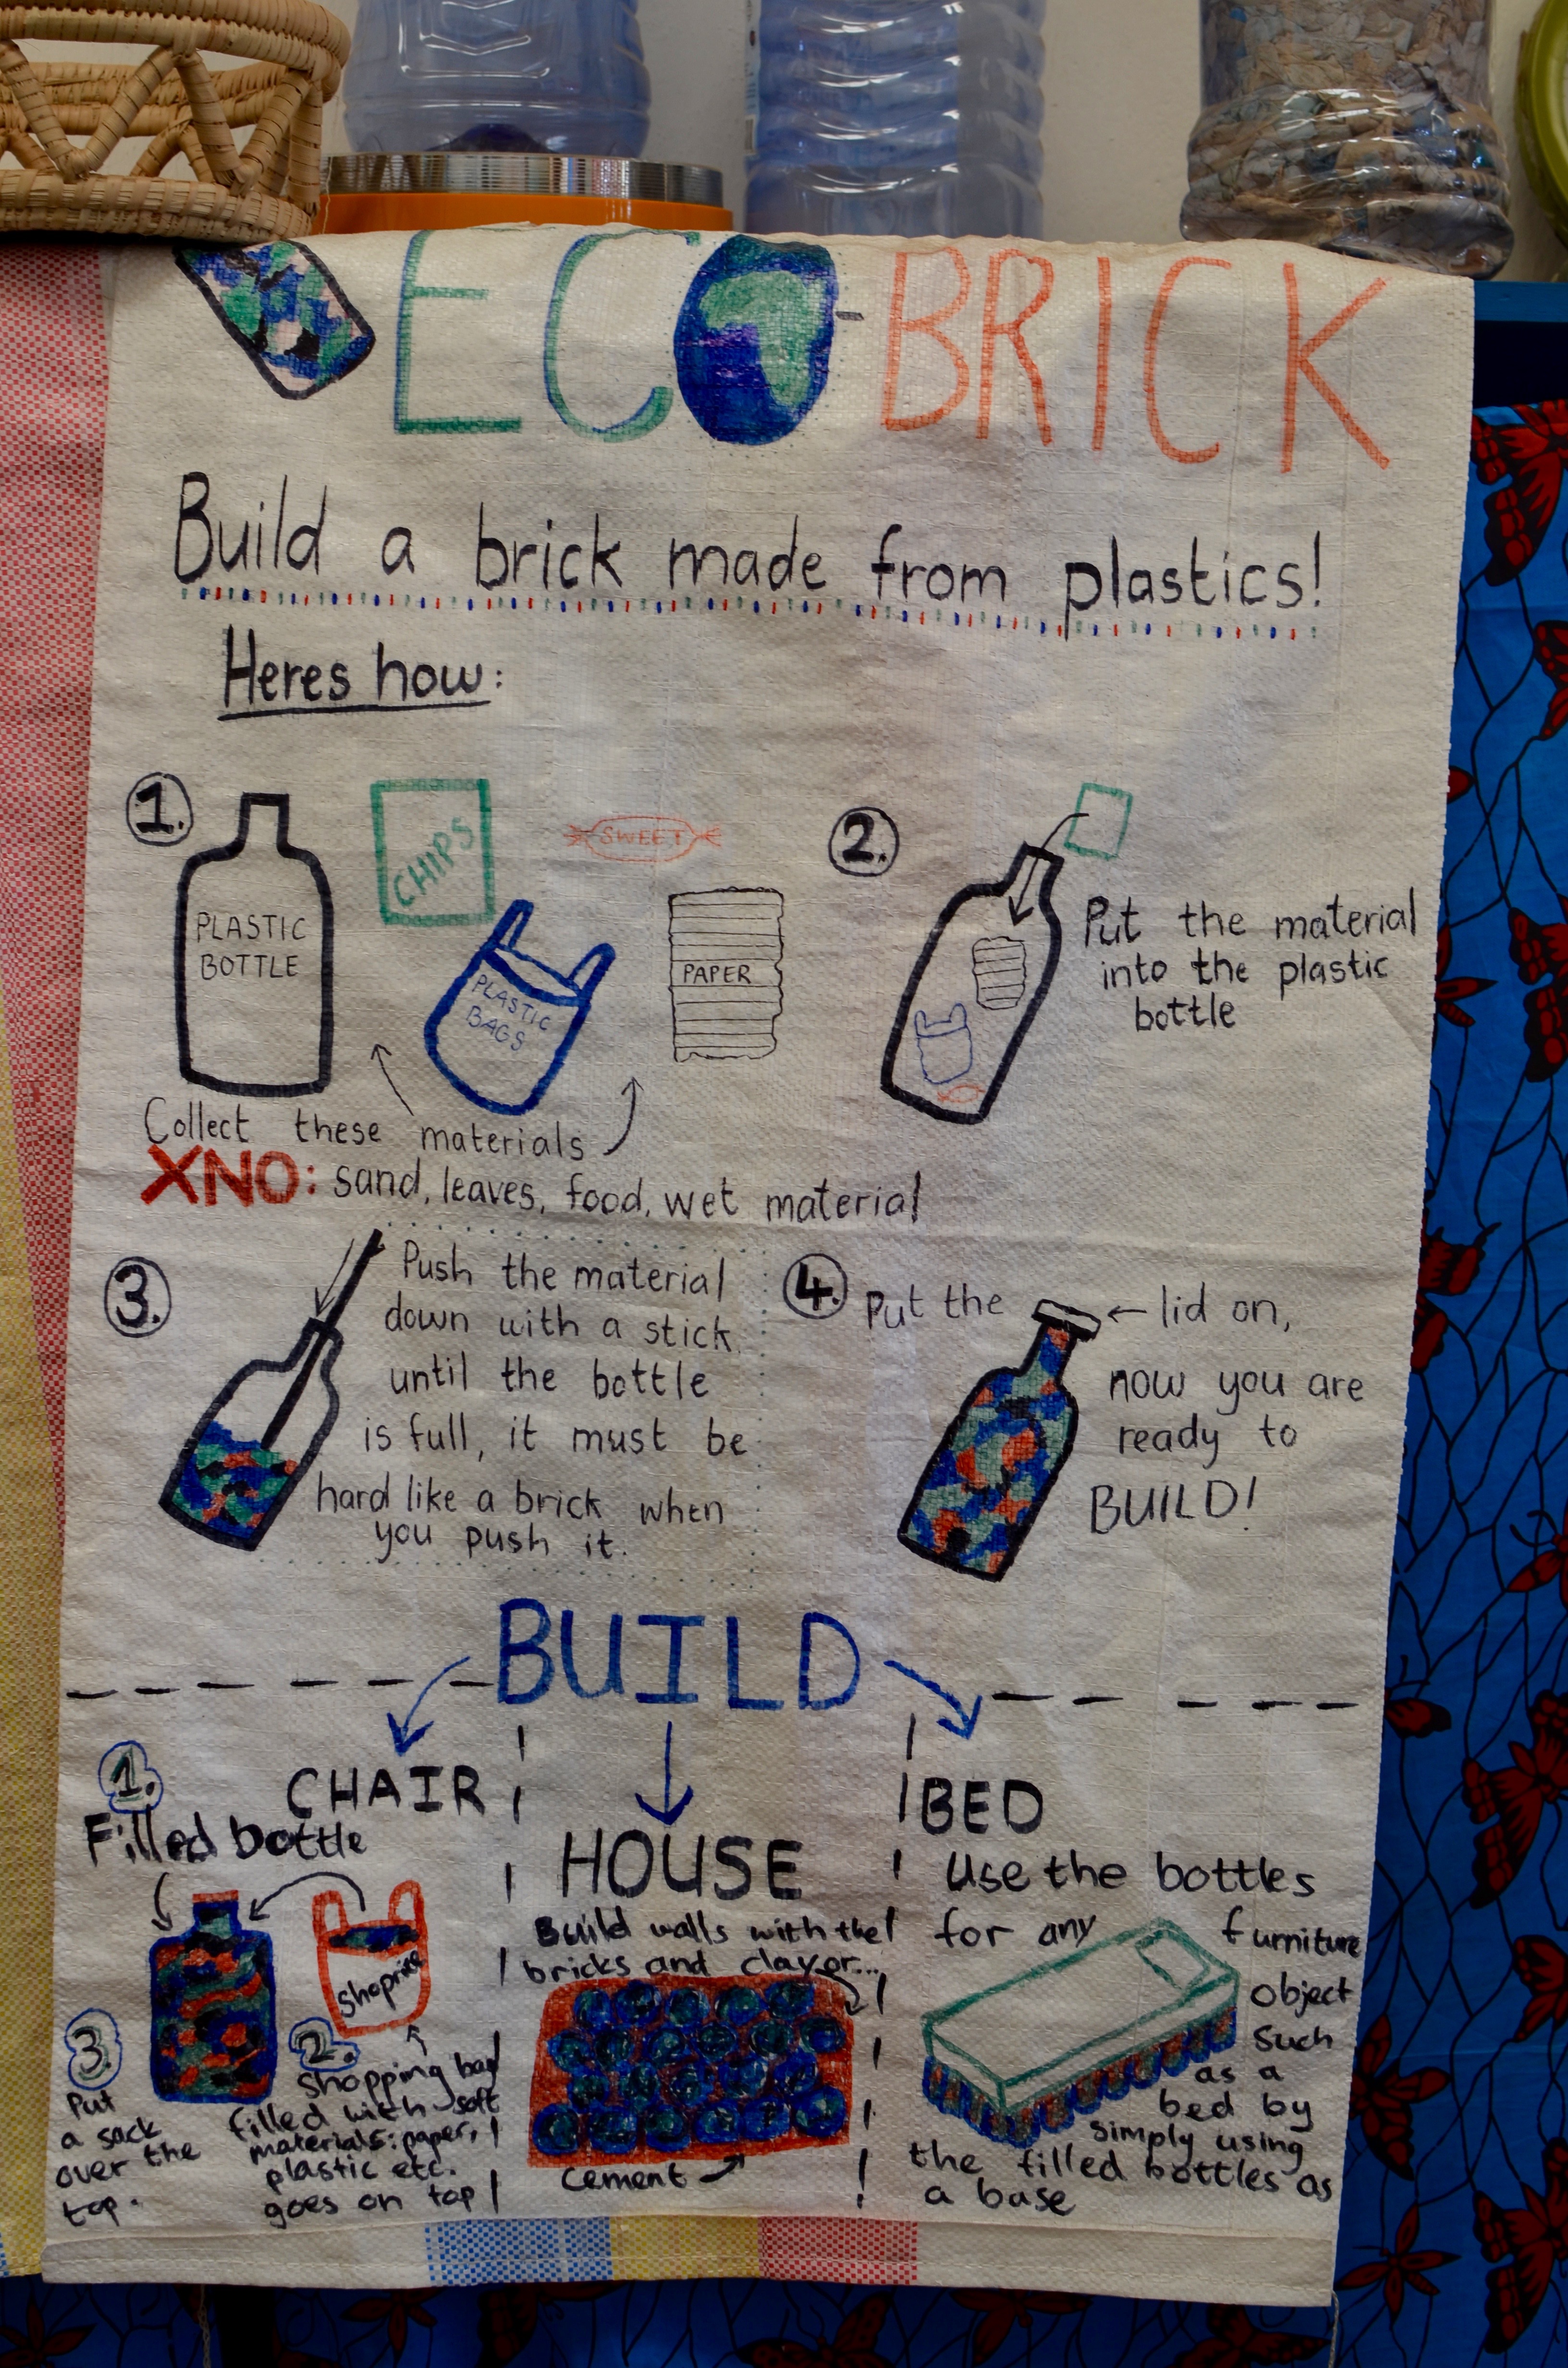 ECO-BRICK
Build a brick made from plastics!
Heres how:
1.
PLASTIC
BOTTLE
CHIPS
SWEET
PLASTIC
BAGS
PAPER
Collect these materials
XNO: sand, leaves, food, wet material
2.
Put the material
into the plastic
bottle
3.
Push the material
down with a stick
until the bottle
is full, it must be
hard like a brick when
you push it.
4. Put the lid on,
now you are
ready to
BUILD!
BUILD
CHAIR
1.
Filled bottle
Shoprite
2.
Shopping bag
filled with soft
materials: paper,
plastic etc.
goes on top
3.
Put
a sack
over the
top.
HOUSE
Build walls with the
bricks and clay or...
Cement
BED
Use the bottles
for any furniture
object
such
as a
bed by
simply using
the filled bottles as
a base